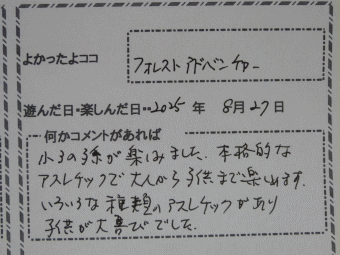 よかったよココ
フォレストアドベンチャー
遊んだ日・楽しんだ日・・2025年 8月27日
何かコメントがあれば
小3の孫が楽しみました。本格的な
アスレチックで大人から子供まで楽しめます。
いろいろな種類のアスレチックがあり
子供が大喜びでした。